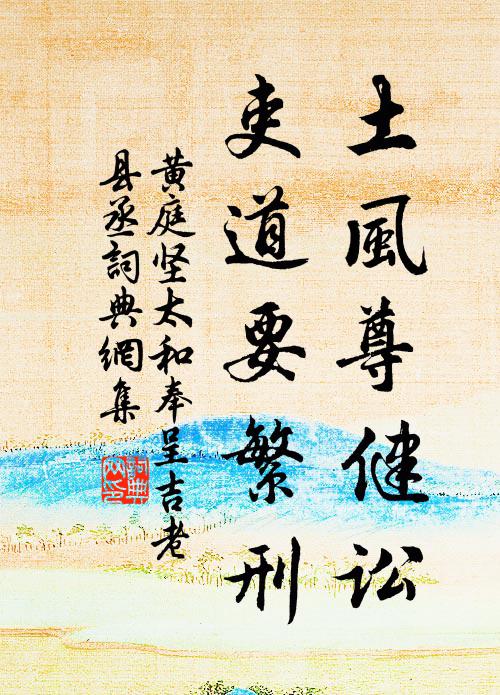 土風尊健讼
吏道要繁刑
黄庭坚太和奉呈吉老
县丞詞典網集